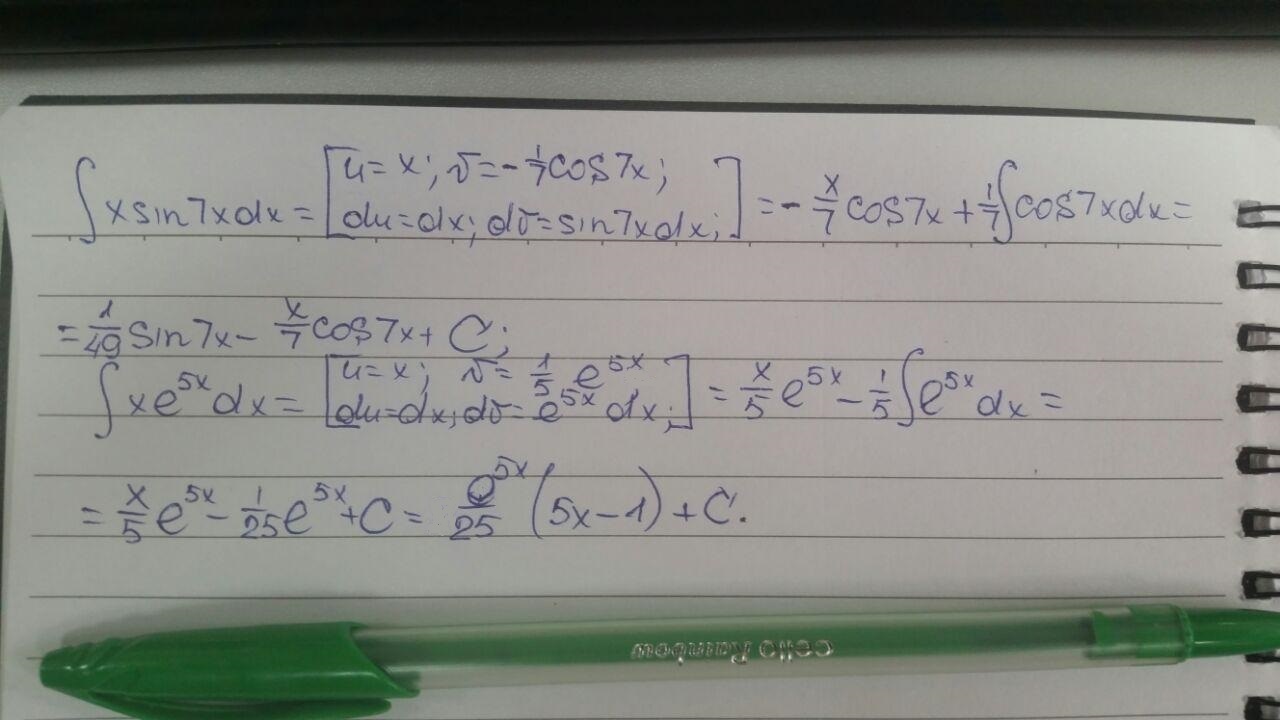 ∫ x sin7x dx = [u = x; v = -1/7 cos7x; du = dx; dv = sin7x dx;] = - x/7 cos7x + 1/7 ∫ cos7x dx =
= 1/49 sin7x - x/7 cos7x + C;
∫ x e^{5x} dx = [u = x; v = 1/5 e^{5x}; du = dx; dv = e^{5x} dx;] = x/5 e^{5x} - 1/5 ∫ e^{5x} dx =
= x/5 e^{5x} - 1/25 e^{5x} + C = e^{5x}/25 (5x - 1) + C.
cello Rainbow